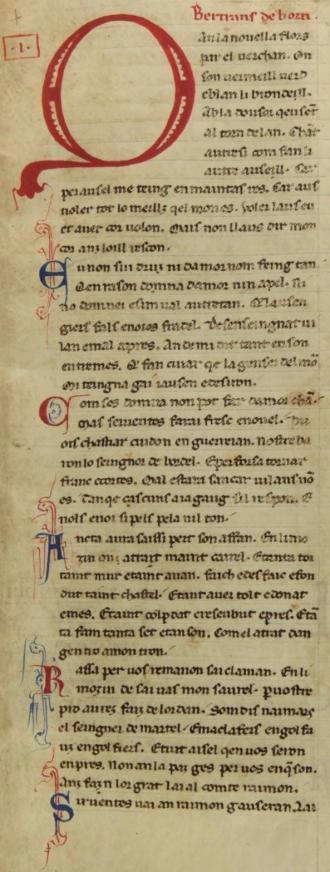 Bertrans de born.
.I.
Q an la nouella flors
par el uerchan. On
son uermeill uerd
eblan li brondeill.
Ab la dousor qeu sent
al torn de lan. Chāt
autresi com fan li
autre auseill. Car
per ausel me teing en maintas res. Car aus
uoler tot lo meillz qel mon es. voler laus eu
et auer cor uolon. Mais non llaus dir mon
cor anz loill rescon.
E u non sui druz ni damor nom feing tan
Qen razon domna damor nin apel.
no domnei esim ual autretan.
giers fals enoios
lan emal apres. An de mi dit tant en son
entremes. Qe fan cuiar qe la genser del mō
Mi teingna gai iausen edesiron.
C om ses domna non pot far damor chā.
Mas seruentes farai fresc enouel.
ois chastiar cuidon en guereian. Nostre ba
ron lo seingnor de bordel. E per forsa tornar
franc ecortes. Mal estara sancar uilans nō
es. Tan qe cascuns aia gaug sil respon. E
nols enoi si pels pela ni ton.
A ncta aura saissi pert son affan. En limo
zin on atrait maint cairel. Etanta tor
taint mur etaint auan. Fraich edesfaic efon
dut taint chastel. Etant auer tolt edonat
emes. Etaint colp dat ereseubut epres. Etā
ta fam tanta set etan son. Com el atrait dan
gen tro a mon tron.
R assa per uos remanon sai claman. En li
mozin de sai uas mon saurel. Pauostre
pro auretz faiz de lor dan. Som dis naimars
el seingner de martel. Emaclafeis engolfa
us engolfiers. Etuit aisel qen uos seron
enpres. Non an la paz ges per uos enqson.
Anz fazn lor grat lai al comte raimon.
S iruentes uai an raimon gauseran. Lai